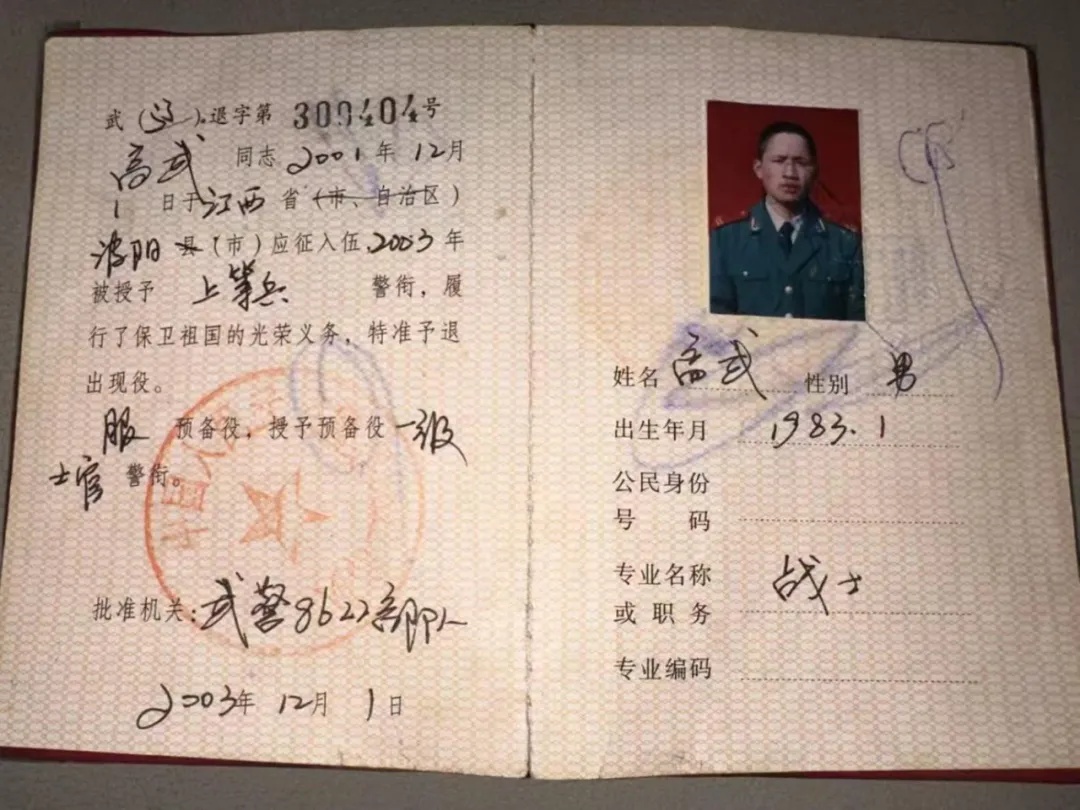 武(辽)退字第309404号
高武 同志2001年12月
1日于江西省(市、自治区)
波阳县(市)应征入伍,2003年
被授予 上等兵 警衔,履
行了保卫祖国的光荣义务,特准予退
出现役。
服 预备役,授予预备役一级
士官 警衔。
批准机关:武警8622部队
2003年12月1日
姓名 高武 性别 男
出生年月 1983.1
公民身份
号码
专业名称 战士
或职务
专业编码